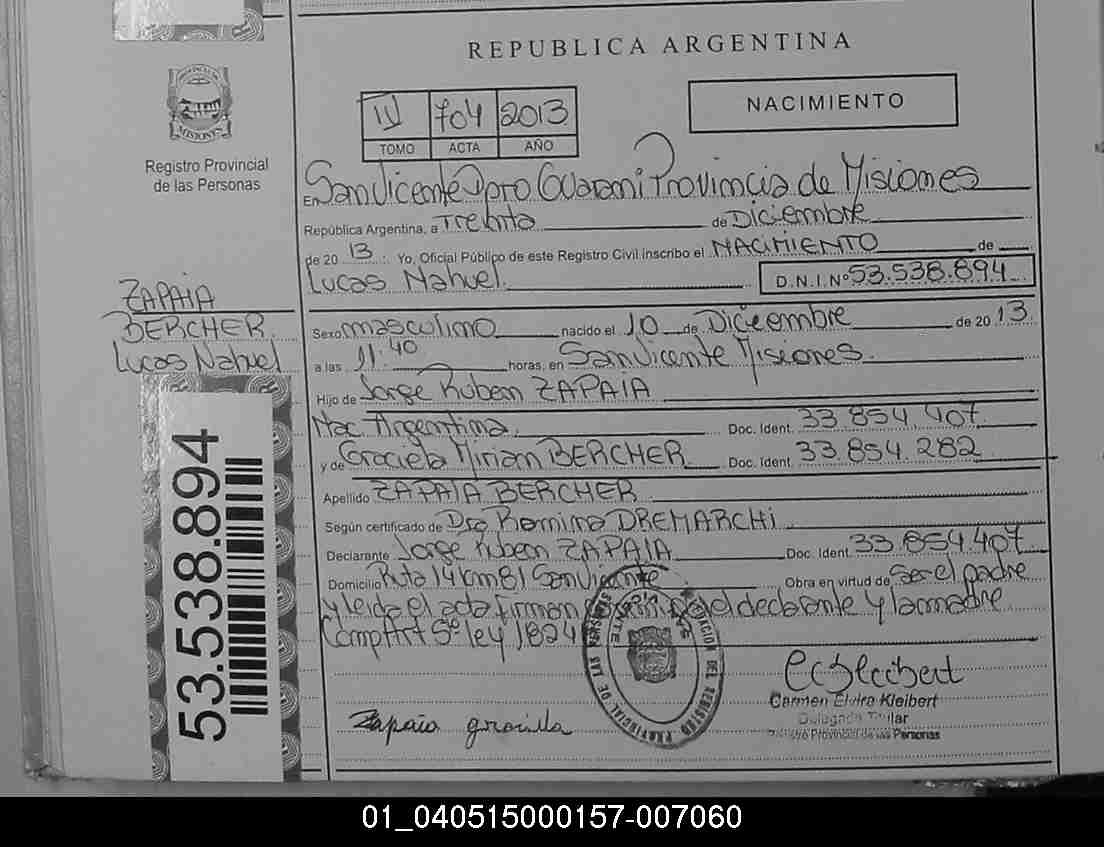 REPUBLICA ARGENTINA
PROVINCIA DE
MISIONES
Registro Provincial
de las Personas
IV 704 2013
TOMO ACTA AÑO
NACIMIENTO
En San Vicente Dpto Guarani Provincia de Misiones
República Argentina, a Treinta de Diciembre
de 2013. Yo, Oficial Público de este Registro Civil inscribo el NACIMIENTO de
Lucas Nahuel D.N.I. Nº 53.538.894
ZAPAIA
BERCHER
Lucas Nahuel
Sexo masculino nacido el 10 de Diciembre de 2013
a las 11:40 horas, en San Vicente Misiones.
Hijo de Jorge Ruben ZAPAIA
Nac Argentina. Doc. Ident. 33.854.407
y de Graciela Mirian BERCHER Doc. Ident. 33.854.282
Apellido ZAPAIA BERCHER
Según certificado de Dra Romina DREMARCHI
Declarante Jorge Ruben ZAPAIA Doc. Ident. 33.854.407
Domicilio Ruta 14 km 81 San Vicente Obra en virtud de Ser el padre
y leida el acta firman el declarante y la madre
Comp Art 5º ley 1824
53.538.894
Carmen Elvira Kleibert
Delegada Titular
Registro Provincial de las Personas
Zapaia graciela
01_040515000157-007060